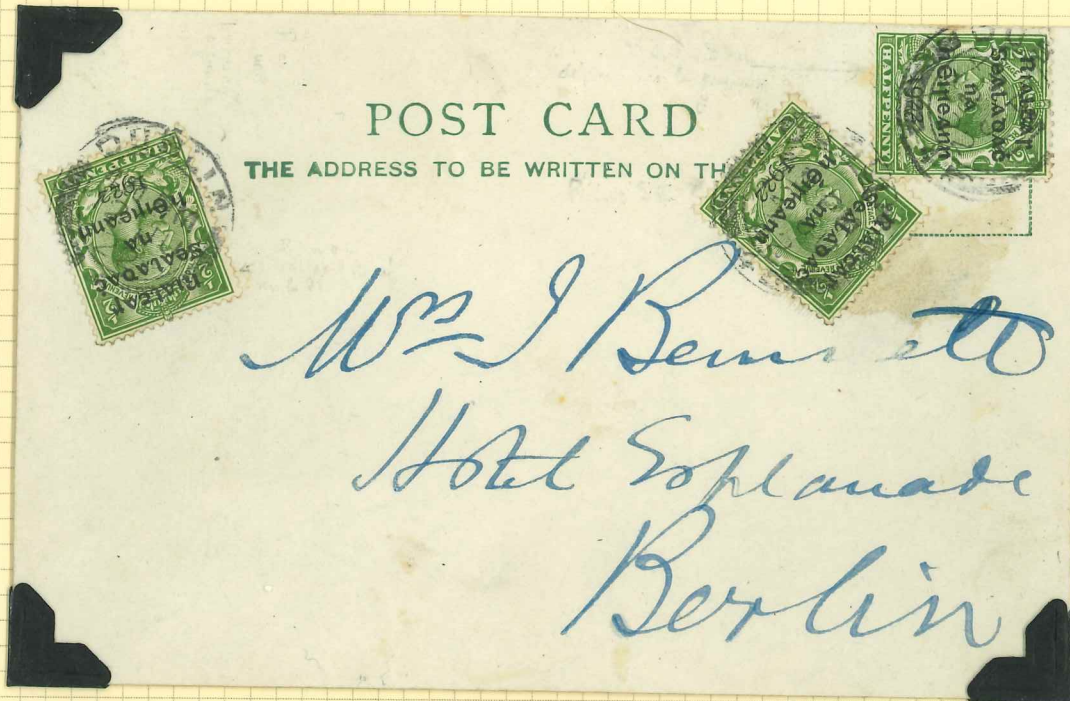 POST CARD
THE ADDRESS TO BE WRITTEN ON TH
HALFPENNY
Rialtas
Sealadac
na
hÉireann
1922
HALFPENNY
Rialtas
Sealadac
na
hÉireann
1922
Rialtas
Sealadac
na
hÉireann
1922
Mrs J Bennett
Hotel Esplanade
Berlin